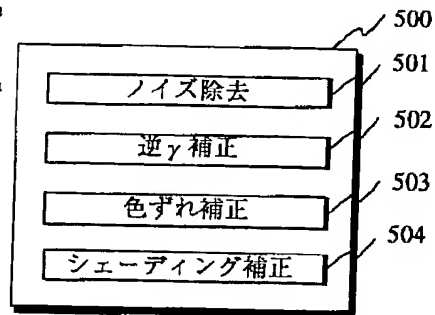 500
ノイズ除去 501
逆γ補正 502
色ずれ補正 503
シェーディング補正 504